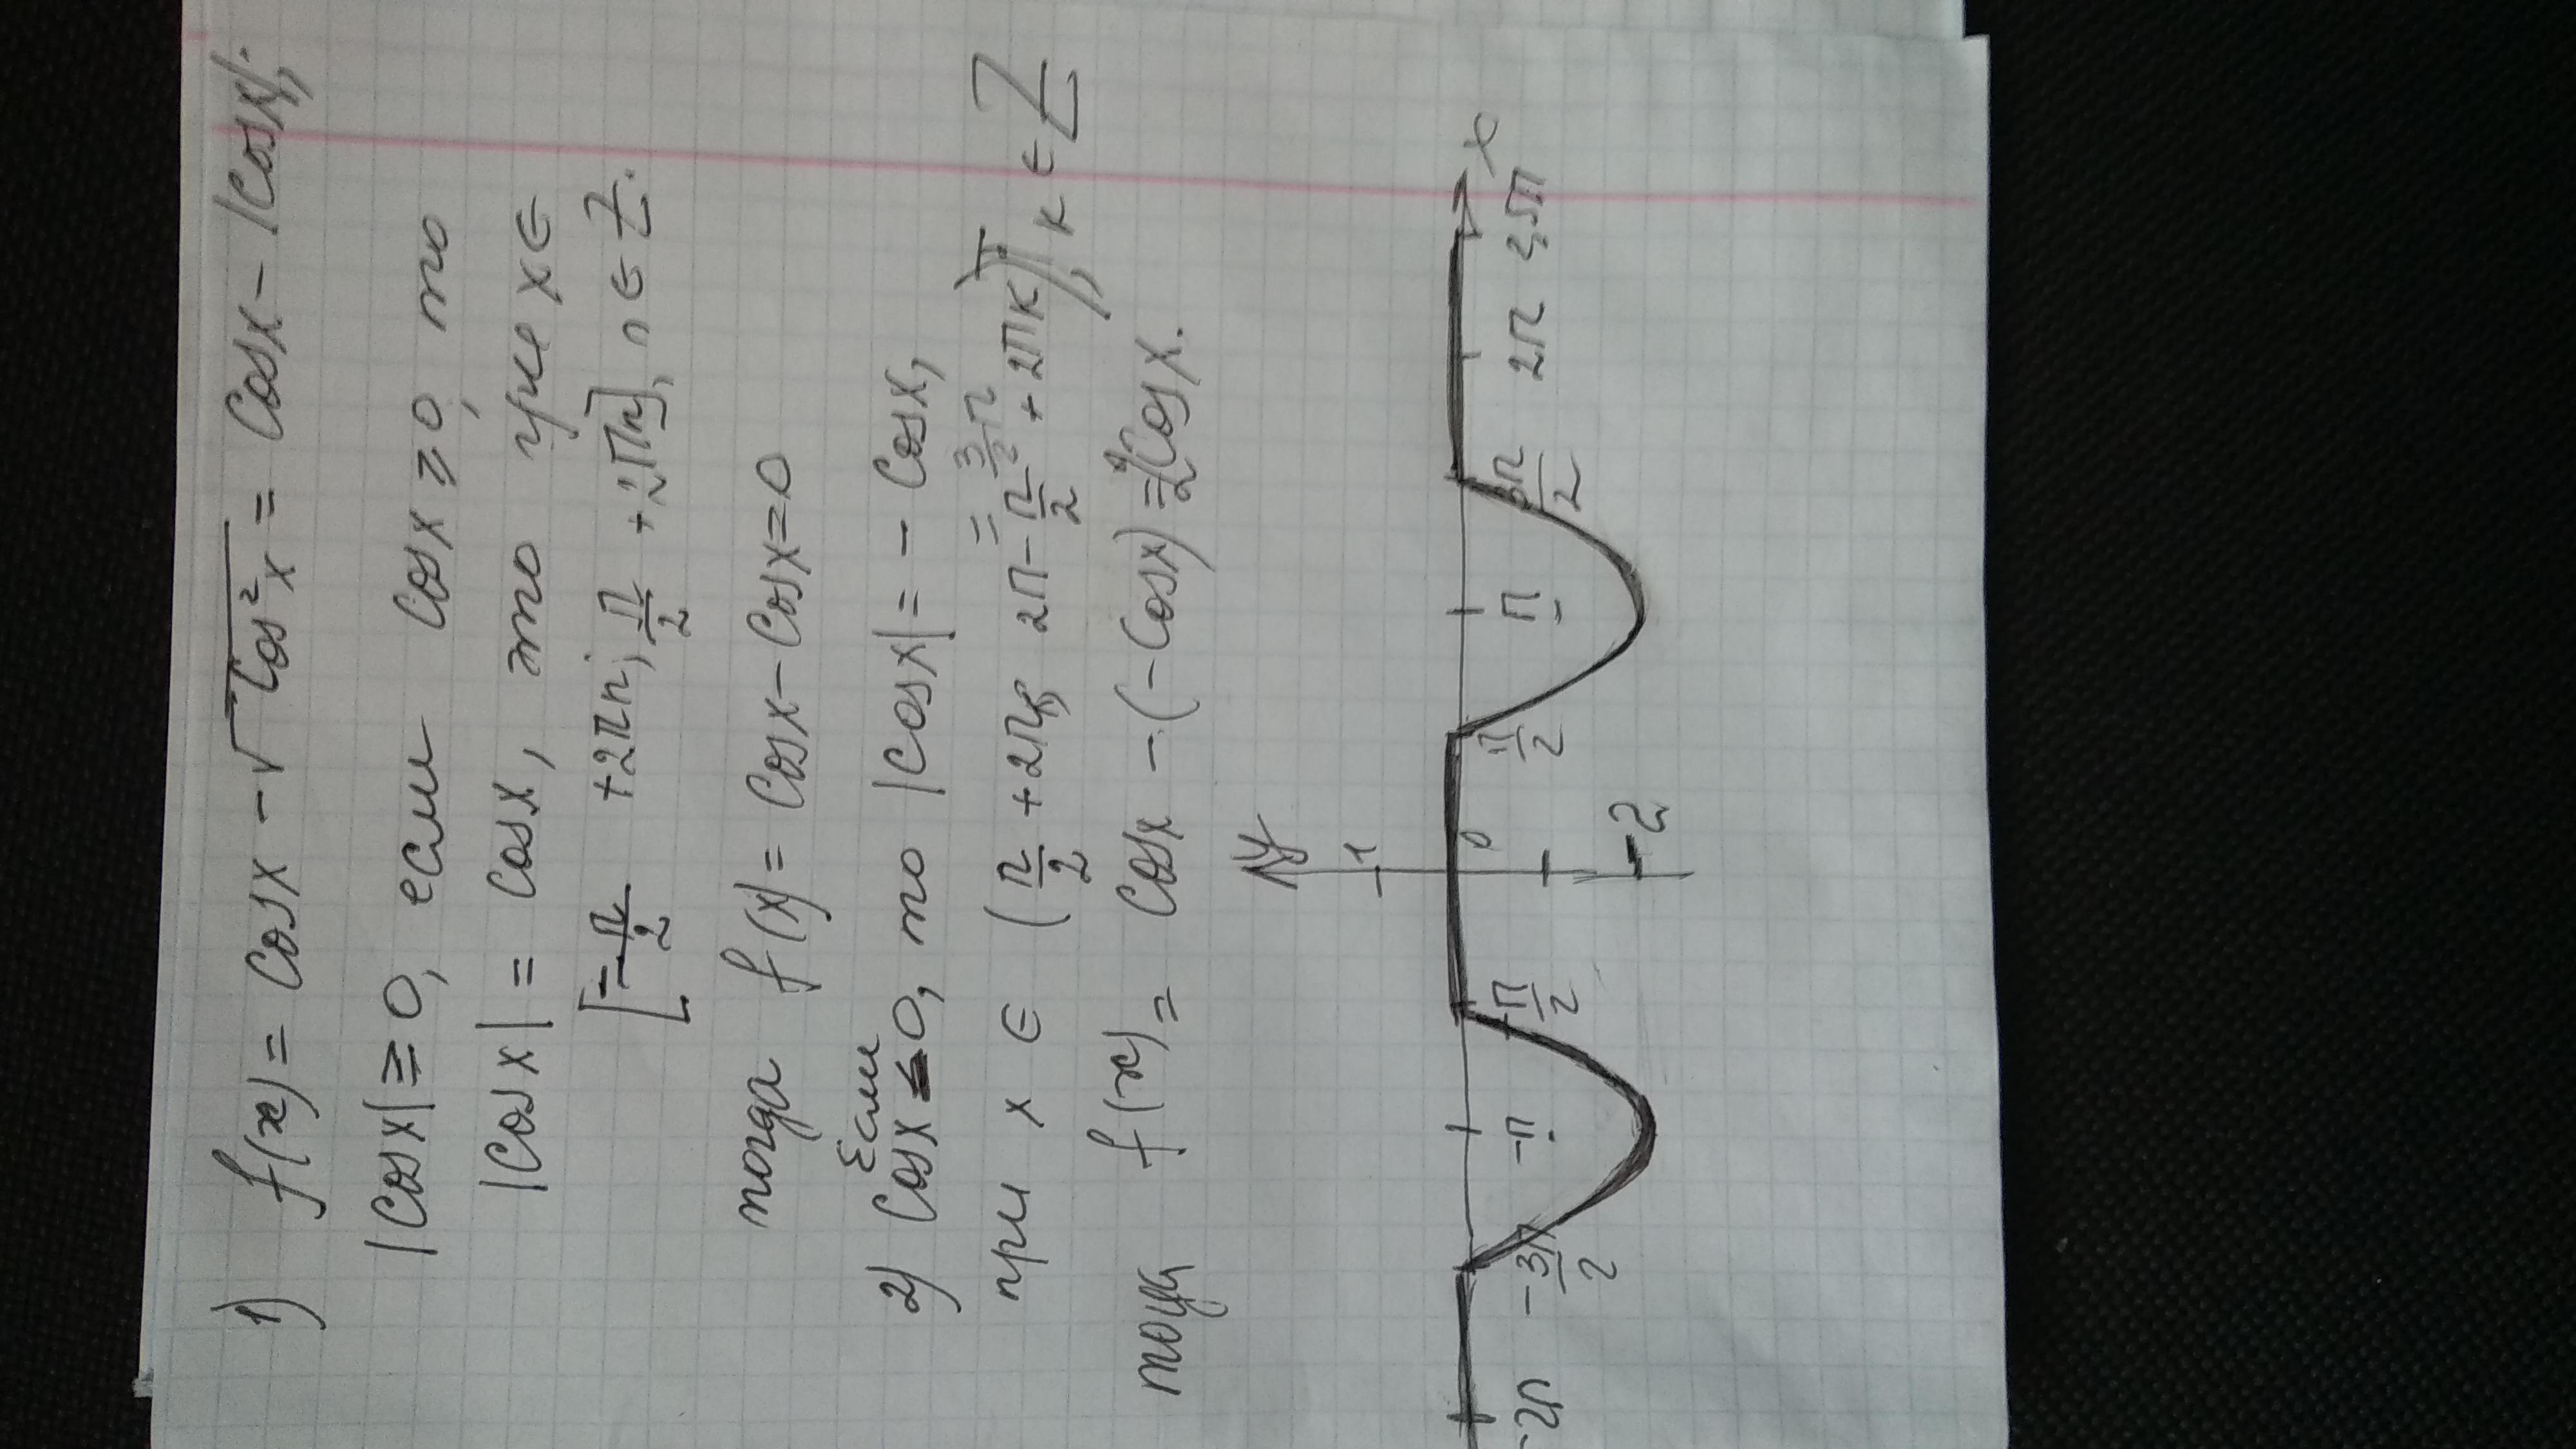 1) f(x) = Cosx - √Cos²x = Cosx - |Cosx|;
|Cosx| ≥ 0, если Cosx ≥ 0, то
|Cosx| = Cosx, это при x ∈
[-π/2 + 2πn; π/2 + 2πn], n ∈ Z.
тогда f(x) = Cosx - Cosx = 0
Если
2) Cosx ≤ 0, то |Cosx| = - Cosx,
= 3/2 π
при x ∈ (π/2 + 2πk; 2π - π/2 + 2πk), k ∈ Z
тогда f(x) = Cosx - (-Cosx) = 2Cosx.
y
1
0 x
-2π -3π/2 -π -π/2 π/2 π 3π/2 2π 2,5π
-2